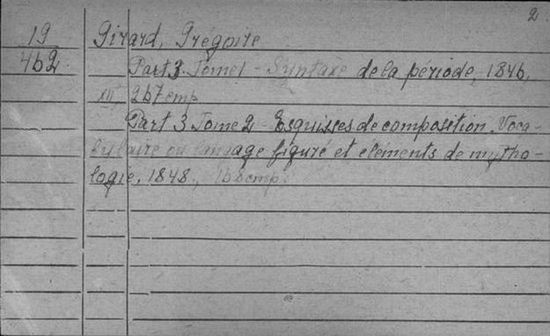 2
19 Girard, Grégoire
462 Part 3. Tome 1 - Syntaxe de la période, 1846,
XII, 267 cmp.
Part 3 Tome 2 - Esquisses de composition. Voca-
bulaire du langage figuré et eléments de mytho-
logie, 1848, 168 cmp.